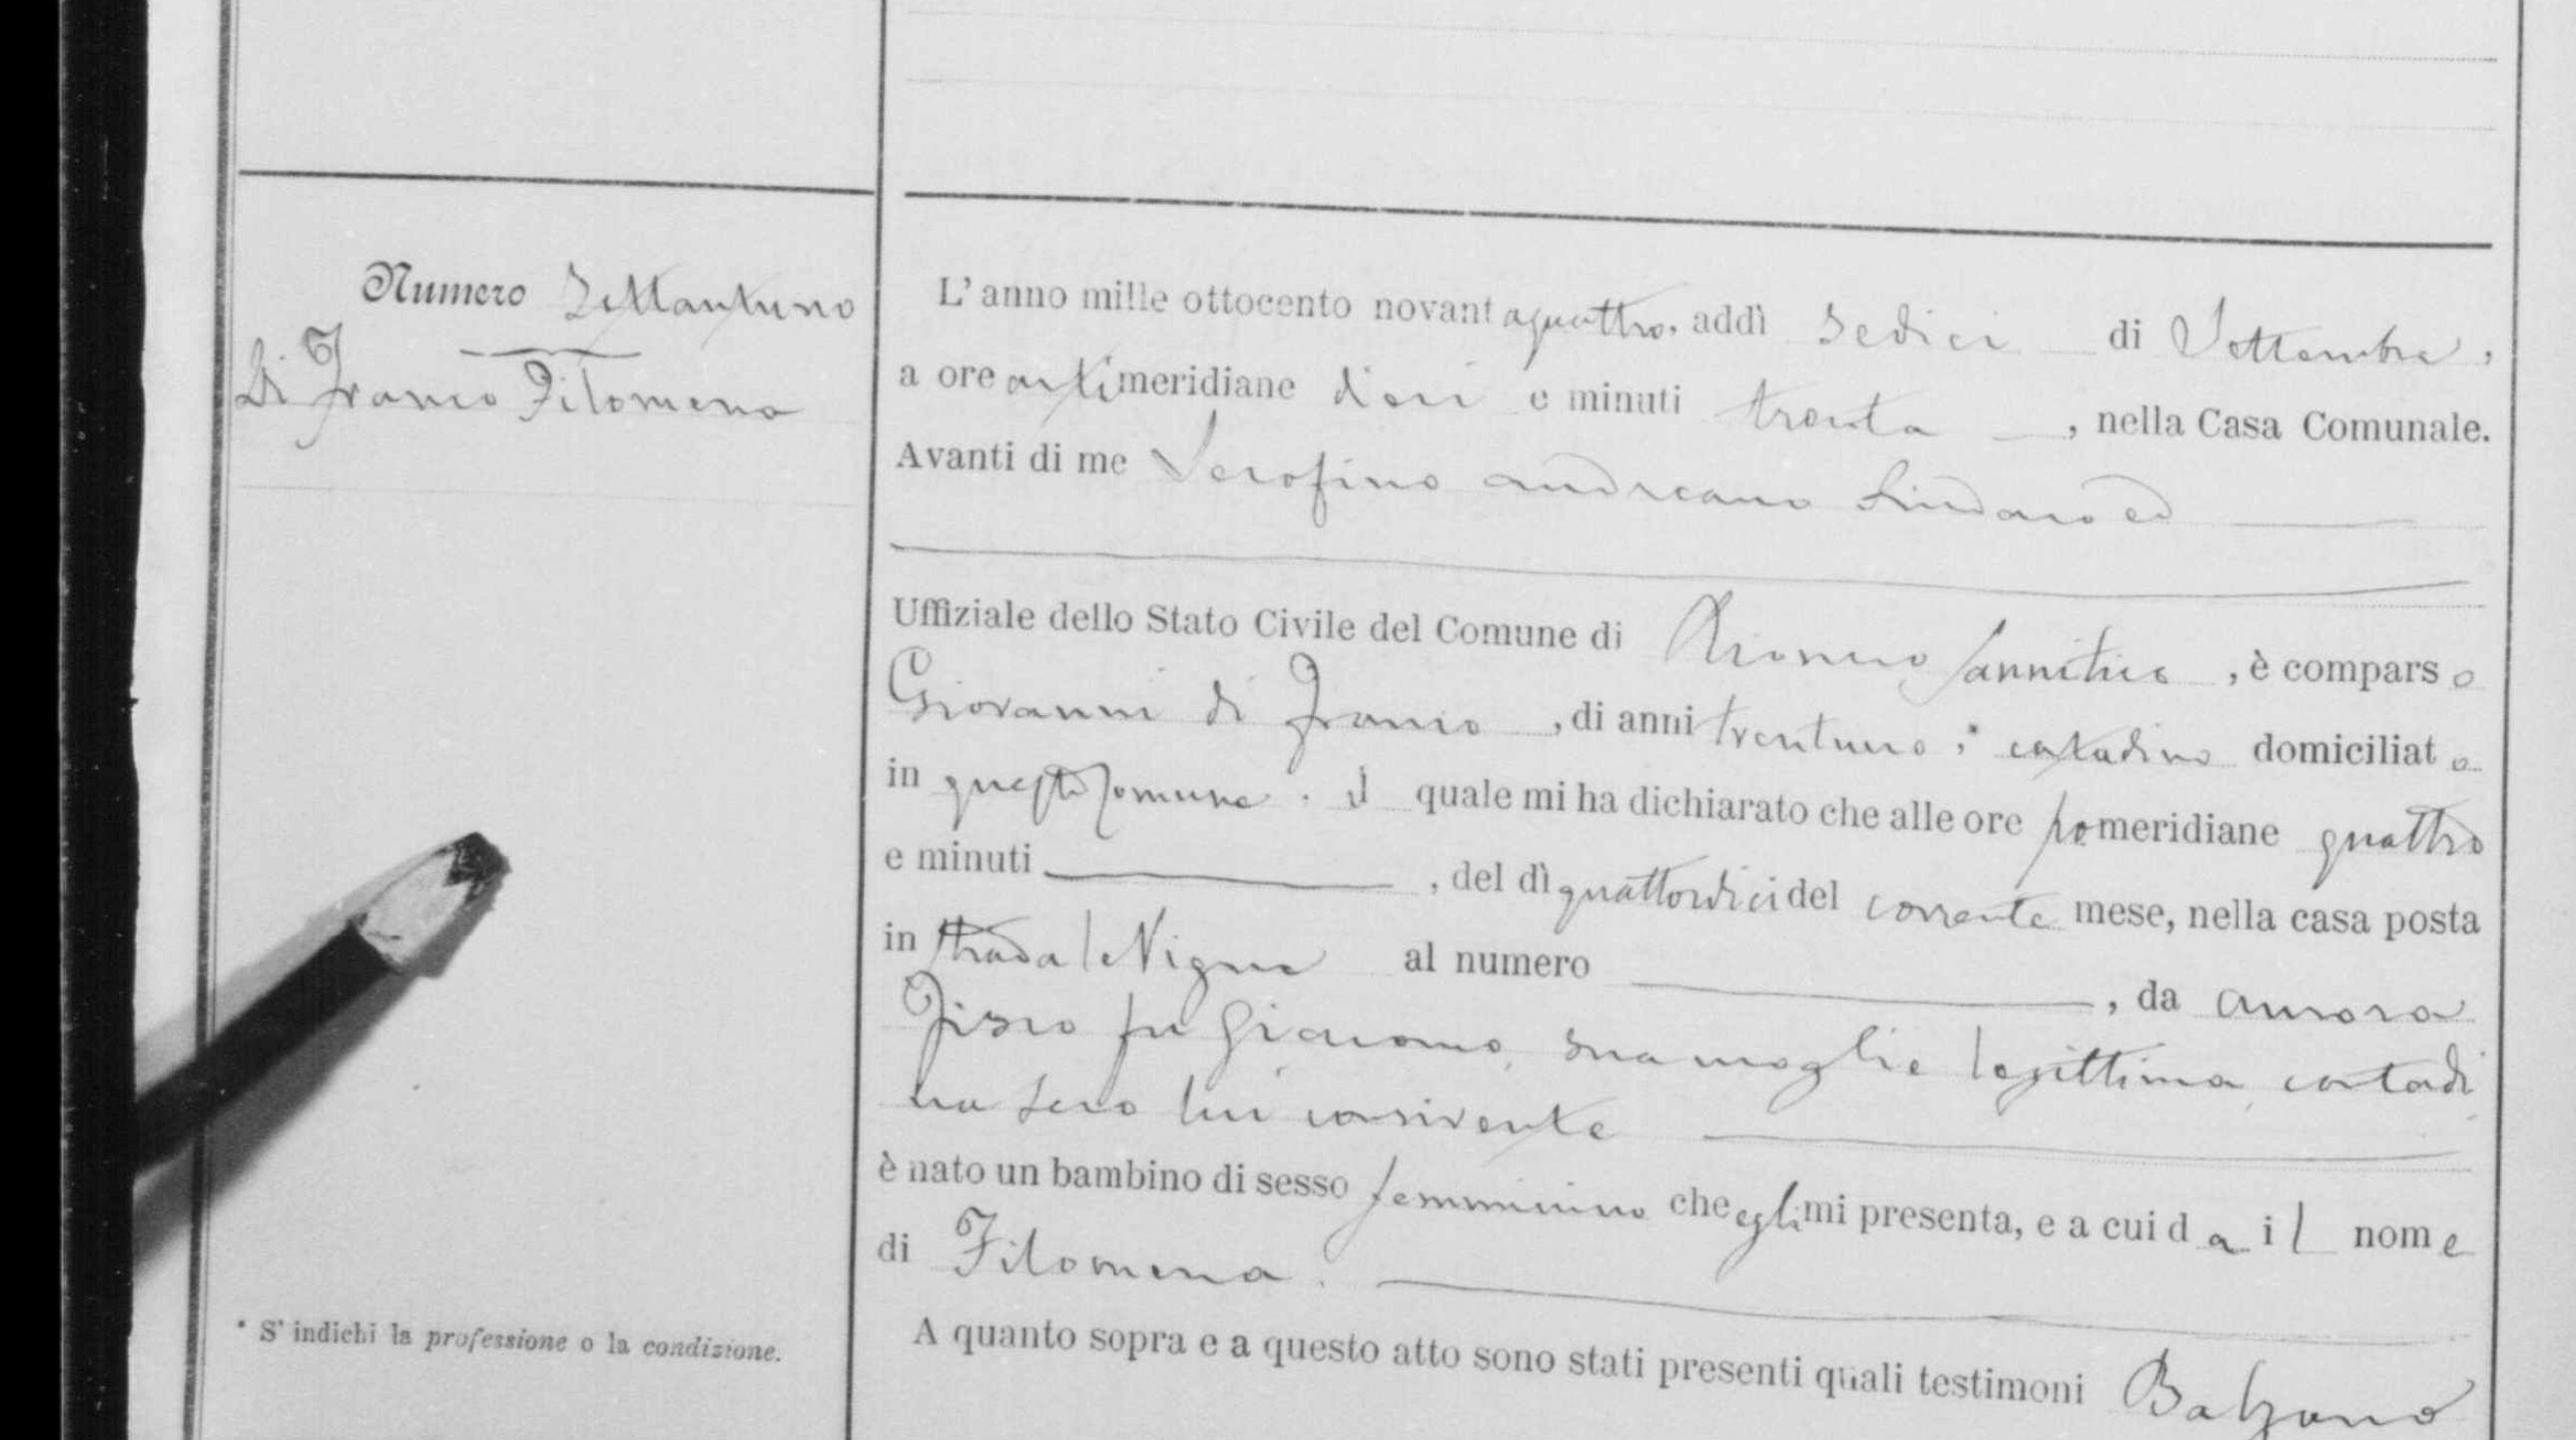 Numero Settantuno
Di Franco Filomena
L'anno mille ottocento novantaquattro, addì sedici di Settembre,
a ore antimeridiane dieci e minuti trenta, nella Casa Comunale.
Avanti di me Serafino Andreano Sindaco ed
Uffiziale dello Stato Civile del Comune di Rionero Sannitico, è comparso
Giovanni di Franco, di anni trentuno, * contadino domiciliato
in questo Comune. il quale mi ha dichiarato che alle ore pomeridiane quattro
e minuti, del dì quattordici del corrente mese, nella casa posta
in strada le Vigne al numero, da Aurora
fu Giacomo, sua moglie legittima, contadi
na seco lui convivente
è nato un bambino di sesso femminino che egli mi presenta, e a cui da il nome
di Filomena.
* S'indichi la professione o la condizione.
A quanto sopra e a questo atto sono stati presenti quali testimoni Balzano